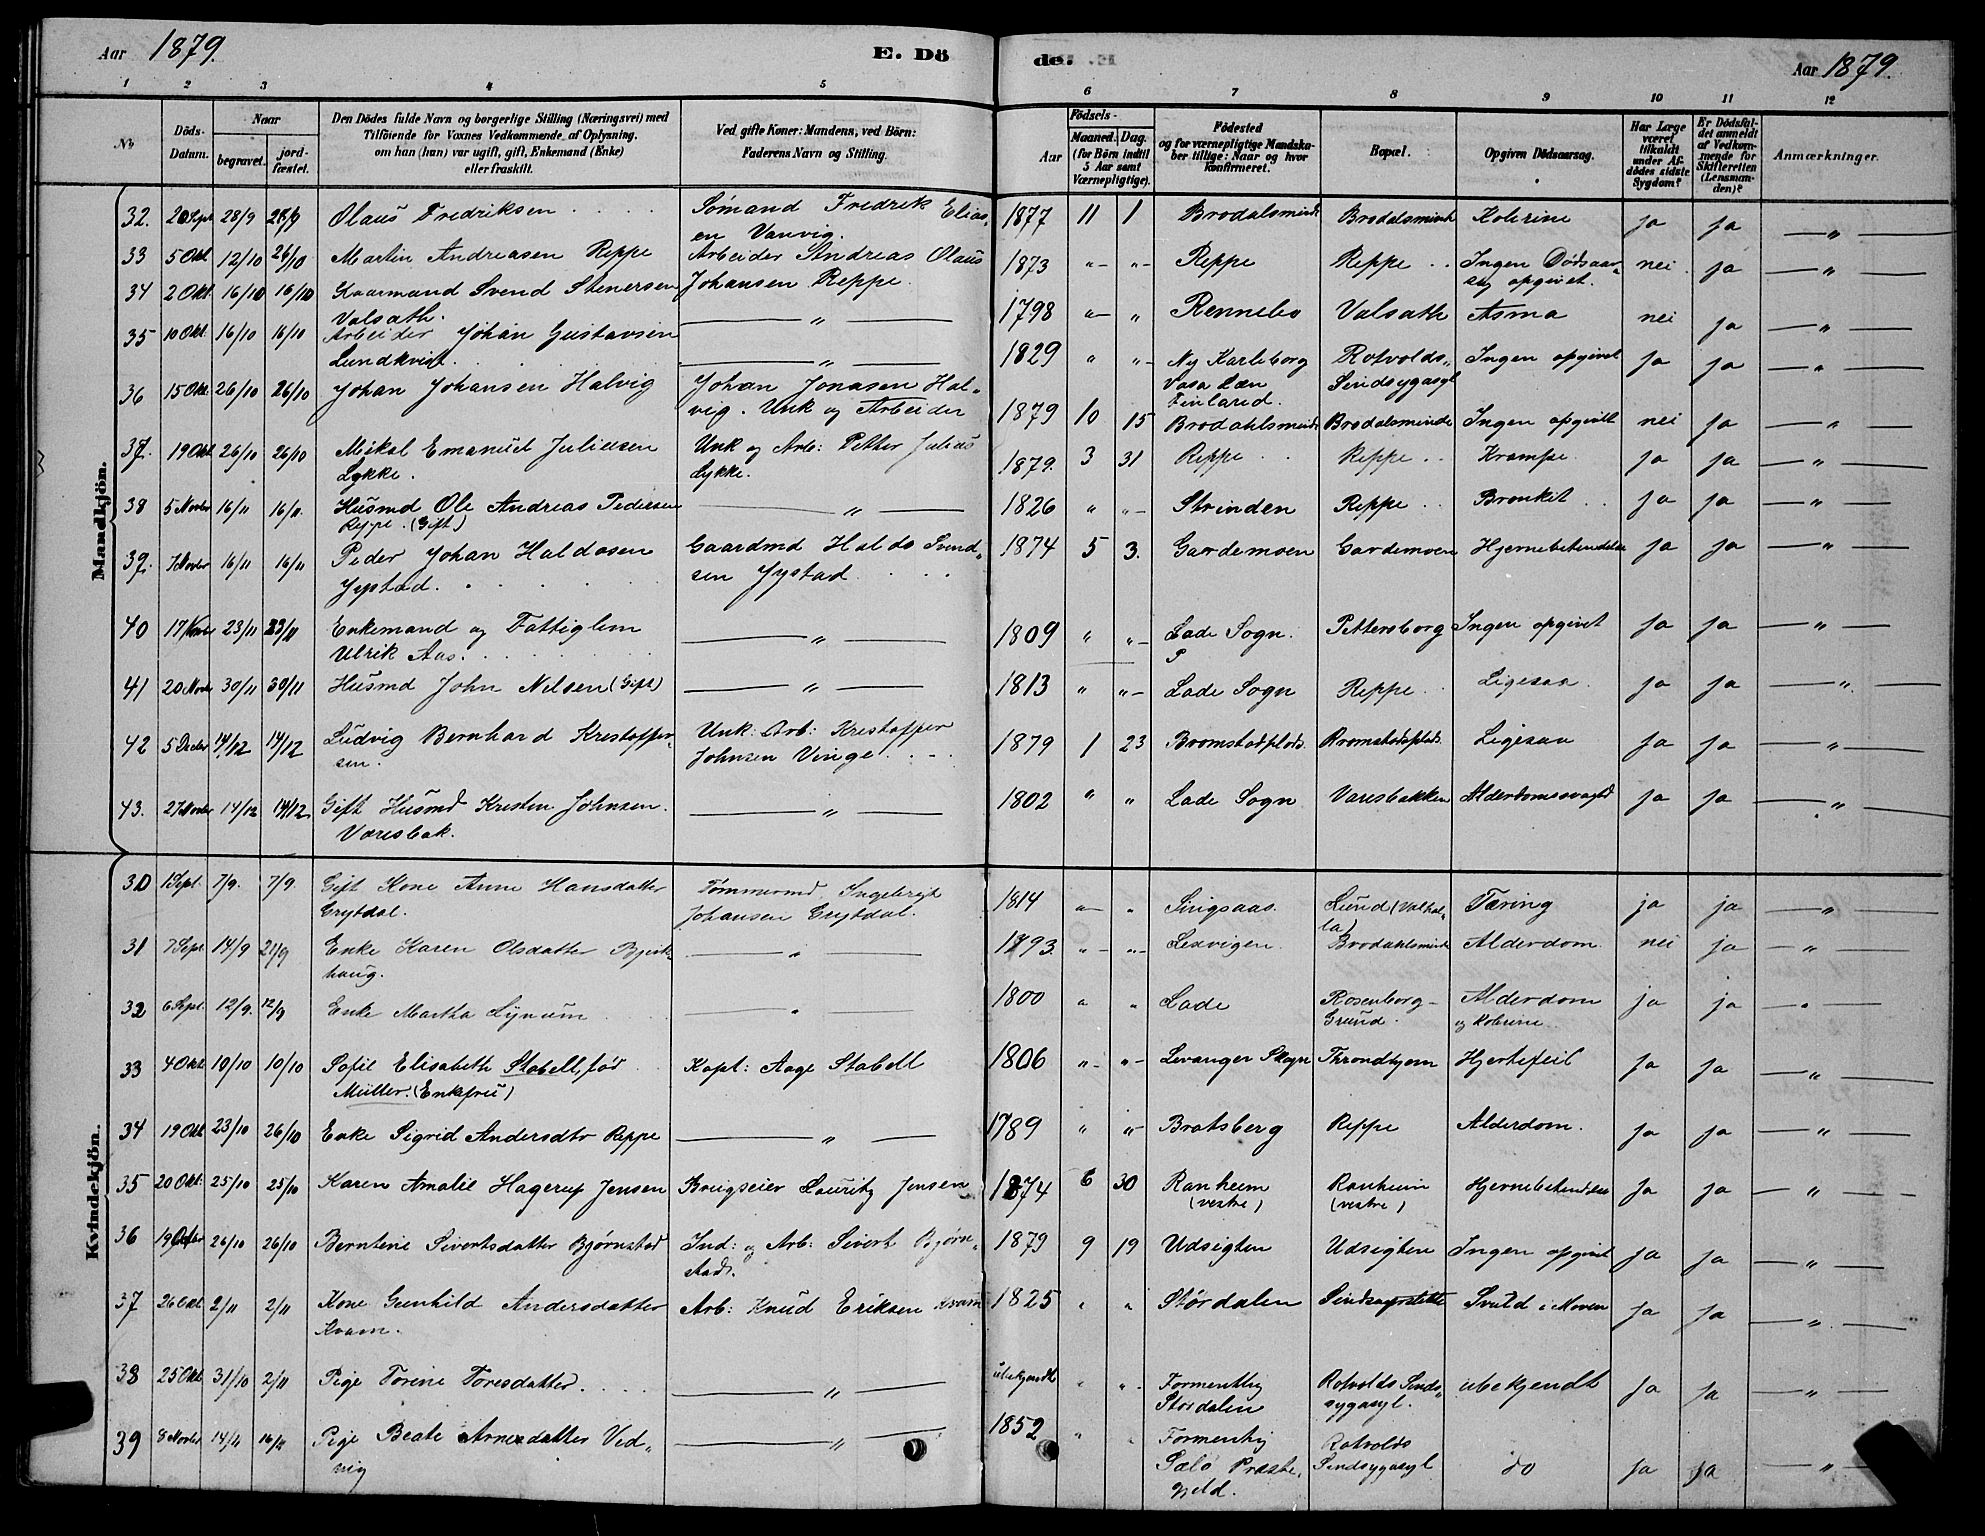 Aar 1879.
E. Dö
de.
Aar 1879.
1 2 3 4 5 6 7 8 9 10 11 12
No
Döds-Datum.
Naar
begravet.
jordfæstet.
Den Dödes fulde Navn og borgerlige Stilling (Næringsvei) med
Tilföiende for Voxnes Vedkommende af Oplysning,
om han (hun) var ugift, gift, Enkemand (Enke)
eller fraskilt.
Ved gifte Koner: Mandens, ved Börn:
Faderens Navn og Stilling.
Födsels-
Aar
Maaned. Dag.
(for Börn indtil
5 Aar samt
Værnepligtige).
Födested
og for værnepligtige Mandska-
ber tillige: Naar og hvor
konfirmeret.
Bopæl.
Opgiven Dödsaarsag.
Har Læge
været
tilkaldt
under Af-
dödes sidste
Sygdom?
Er Dödsfal-
det anmeldt
af Vedkom-
mende for
Skifteretten
(Lensman-
den)?
Anmærkninger.
Mandkjön.
32. 20 Sept 28/9 28/9 Olaus Fredriksen Sømand Fredrik Elias,
en Vanvig. 1877 11 1 Brodalsminde Brodalsminde Kolerine ja ja "
33 5 Okt 12/10 26/10 Martin Andreasen Reppe Arbeider Andreas Olaus
Johansen Reppe. 1873 " " Reppe Reppe Ingen Dødsaar-
sag opgivet. nei ja "
34 2 Okt 16/10 16/10 Gaarmand Svend Stenersen
Valsath. " 1798 " " Rennebo Valsath Asma nei ja "
35 10 Okt 16/10 16/10 Arbeider Johan Gustavsen
Lundkvist. " 1829 " " Ny Karleborg
Vasa Læn
Finland. Rotvolds
Sindsygasyl Ingen opgivet ja ja "
36 15 Okt 26/10 26/10 Johan Johansen Halvig Johan Jonasen Hal-
vig. Unk og Arbeider 1879 10 15 Brodahlsminde Brodalsminde Ingen opgivet nei ja "
37. 19 Okt 26/10 26/10 Mikal Emanuel Juliusen
Lykke. Unk og Arb: Petter Julius
Lykke. 1879. 3 31 Reppe Reppe Krampe ja ja "
38 5 Novbr 16/11 16/11 Husmd Ole Andreas Pedersen
Reppe. (Gift) " 1826 " " Strinden Reppe Bronkit ja ja "
39. 7 Novbr 16/11 16/11 Peder Johan Haldosen
Jystad. Gaardmd Haldo Svend-
sen Jystad 1874 5 3. Gardemoen Gardemoen Hjernebetændelse ja ja "
40 17 Nov 23/11 23/11 Enkemand og Fattiglem
Ulrik Aas. " 1809 " " Lade Sogn. Pettersborg Ingen opgivet ja ja "
41 20 Novbr 30/11 30/11 Husmd John Nelsen (Gift) " 1813 " " Lade Sogn Reppe Ligesaa ja ja "
42 5 Decbr 14/12 14/12 Ludvig Bernhard Krestoffer-
sen. Unk: Arb: Krestoffer
Johnsen Vinge. 1879 1 23 Bromstadplads Bromstadplads Ligesaa ja ja "
43. 27 Novbr 14/12 14/12 Gift Husmd Kristen Johnsen
Varesbak. " 1802 " " Lade Sogn Varesbakken Alderdomssvaghd ja ja "
Kvindekjön.
30 1 Sept. 7/9. 7/9. Gift Kone Anne Hansdatter
Grytdal. Tømmermd Ingebrigt
Johansen Grytdal. 1814 " " Singsaas. Lund (Valhal-
la) Tæring ja ja "
31 7 Sept 14/9 21/9 Enke Karen Olsdatter Bjerk-
haug. " 1793. " " Lexvigen. Brodahlsminde Alderdom nei ja "
32 6 Sept. 12/9. 12/9 Enke Martha Lynum " 1800 " " Lade Rosenborg-
Grund. Alderdom
og Kolerine ja ja "
33 4 Okt 10/10 10/10 Sofie Elisabeth Stabell, fød
Müller. (Enkefru) Kapt: Aage Stabell 1806 " " Levanger Skogn Throndhjem Hjertefeil ja ja "
34 19 Okt 23/10 26/10 Enke Sigrid Andersdtr Reppe " 1789 " " Bratsberg Reppe Alderdom. ja ja "
35 20 Okt. 25/10 25/10 Karen Amalie Hagerup Jensen Brugseier Lauritz Jensen 1874 6 30 Ranheim
(vestre) Ranheim
(vestre) Hjernebetændelse ja ja "
36 19 Octbr 26/10 26/10 Berntine Sivertsdatter Bjørnstad Ind: og Arb: Sivert Bjørn-
stad. 1879 9 19 Udsigten Udsigten Ingen opgivet ja ja "
37 26 Okt 2/11 2/11 Kone Gunhild Andersdatter
Kvam. Arb: Knud Eriksen Kvam 1825 " " Størdalen Svuld i Maven ja ja "
38 25 Okt 31/10 2/11 Pige Torine Toresdatter. " ubekjendt " " Formentlig
Størdalen Rotvolds Sinds-
sygasyl. ubekjendt ja ja "
39 8 Novbr 14/11 16/11 Pige Beate Arnesdatter Ved-
vig " 1852 " " Formentlig
Præste-
gjeld. Rotvolds
Sindsygasyl do ja ja "